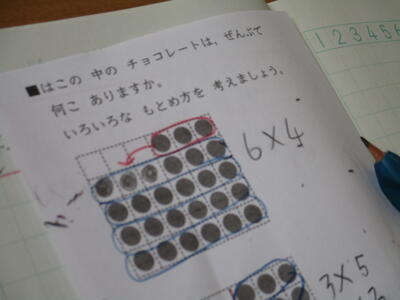 ■はこの 中の チョコレートは, ぜんぶで
何こ ありますか。
いろいろな もとめ方を 考えましょう。
1 2 3 4 5 6
6×4
3×5